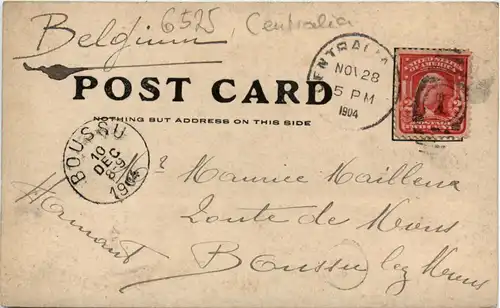 Belgium
6525 Centralia
POST CARD
NOTHING BUT ADDRESS ON THIS SIDE
CENTRALIA
NOV 28
5 PM
1904
UNITED STATES
OF AMERICA
2 2
BOUSSU
10
DEC
1904
Maurice
Route de Mons
Boussu lez Mons
Hainaut